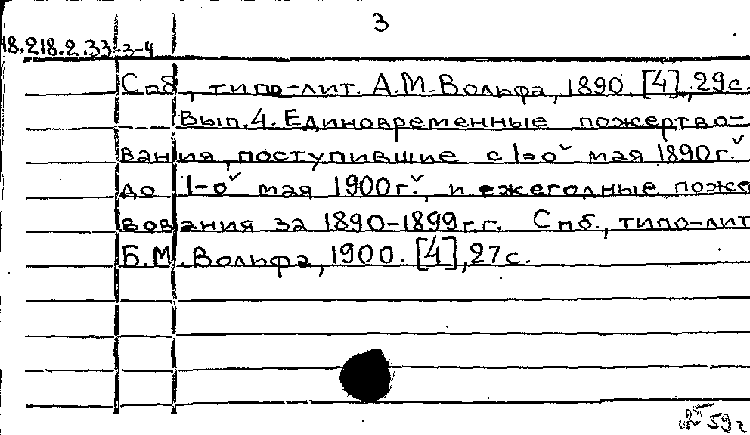 3
18.218.2.33 3-4
Спб., типо-лит. А.М. Вольфа, 1890. [4], 29с.
Вып.4. Единовременные пожертво-
вания, поступившие с 1-о˅ мая 1890г.˅
до 1-о˅ мая 1900г.˅, и ежегодные поже
вования за 1890-1899г.г. Спб., типо-лит
Б.М. Вольфа, 1900. [4], 27с.
59г